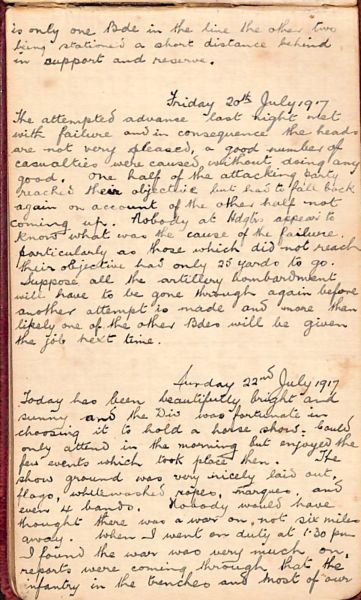 is only one Bde in the line the other two
being stationed a short distance behind
in support and reserve.
Friday 20th July 1917
The attempted advance last night met
with failure and in consequence the heads
are not very pleased, a good number of
casualties were caused, without doing any
good. One half of the attacking party
reached their objective but had to fall back
again on account of the other half not
coming up. Nobody at Hdqts appears to
know what was the cause of the failure
particularly as those which did not reach
their objective had only 25 yards to go.
Suppose all the artillery bombardment
will have to be gone through again before
another attempt is made and more than
likely one of the other Bdes will be given
the job next time.
Sunday 22nd July 1917
Today has been beautifully bright and
sunny and the Div was fortunate in
choosing it to hold a horse show. Could
only attend in the morning but enjoyed the
few events which took place then. The
show ground was very nicely laid out,
flags, whitewashed ropes, marquee, and
even 4 bands. Nobody would have
thought there was a war on, not six miles
away. When I went on duty at 1.30 pm
I found the war was very much on,
reports were coming through that the
infantry in the trenches and most of our